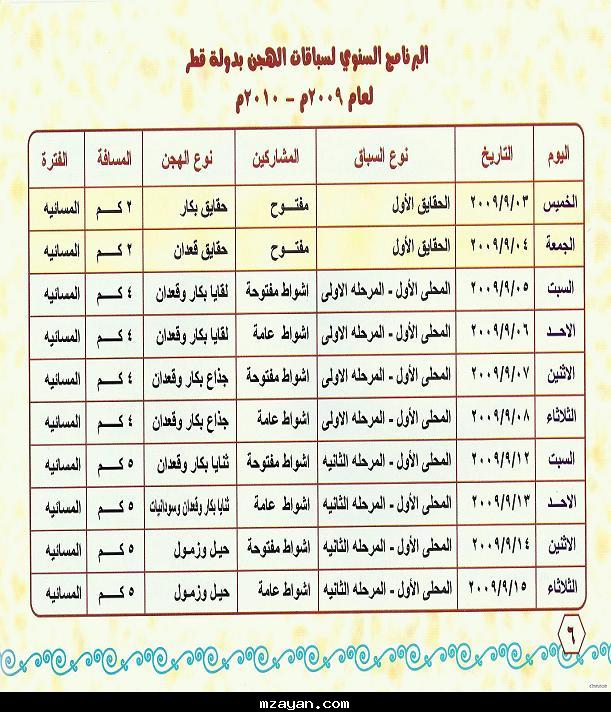 البرنامج السنوي لسباقات الهجن بدولة قطر
لعام ٢٠٠٩م - ٢٠١٠م
اليوم التاريخ نوع السباق المشاركين نوع الهجن المسافة الفترة
الخميس ٢٠٠٩/٩/٠٣ الحقايق الأول مفتــوح حقايق بكار ٢ كــم المسائيه
الجمعة ٢٠٠٩/٩/٠٤ الحقايق الأول مفتــوح حقايق قعدان ٢ كــم المسائيه
السبت ٢٠٠٩/٩/٠٥ المحلى الأول - المرحله الاولى اشواط مفتوحة لقايا بكار وقعدان ٤ كــم المسائيه
الاحد ٢٠٠٩/٩/٠٦ المحلى الأول - المرحله الاولى اشواط عامة لقايا بكار وقعدان ٤ كــم المسائيه
الاثنين ٢٠٠٩/٩/٠٧ المحلى الأول - المرحله الاولى اشواط مفتوحة جذاع بكار وقعدان ٤ كــم المسائيه
الثلاثاء ٢٠٠٩/٩/٠٨ المحلى الأول - المرحله الاولى اشواط عامة جذاع بكار وقعدان ٤ كــم المسائيه
السبت ٢٠٠٩/٩/١٢ المحلى الأول - المرحله الثانيه اشواط مفتوحة ثنايا بكار وقعدان ٥ كــم المسائيه
الاحـد ٢٠٠٩/٩/١٣ المحلى الأول - المرحله الثانيه اشواط عامة ثنايا بكار وقعدان وسودانيات ٥ كــم المسائيه
الاثنين ٢٠٠٩/٩/١٤ المحلى الأول - المرحله الثانيه اشواط مفتوحة حيـل وزمـول ٥ كــم المسائيه
الثلاثاء ٢٠٠٩/٩/١٥ المحلى الأول - المرحله الثانيه اشواط عامة حيـل وزمـول ٥ كــم المسائيه
٦
mzayan.com